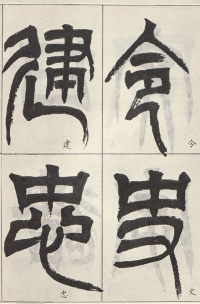 令 令
史 史
建 建
忠 忠